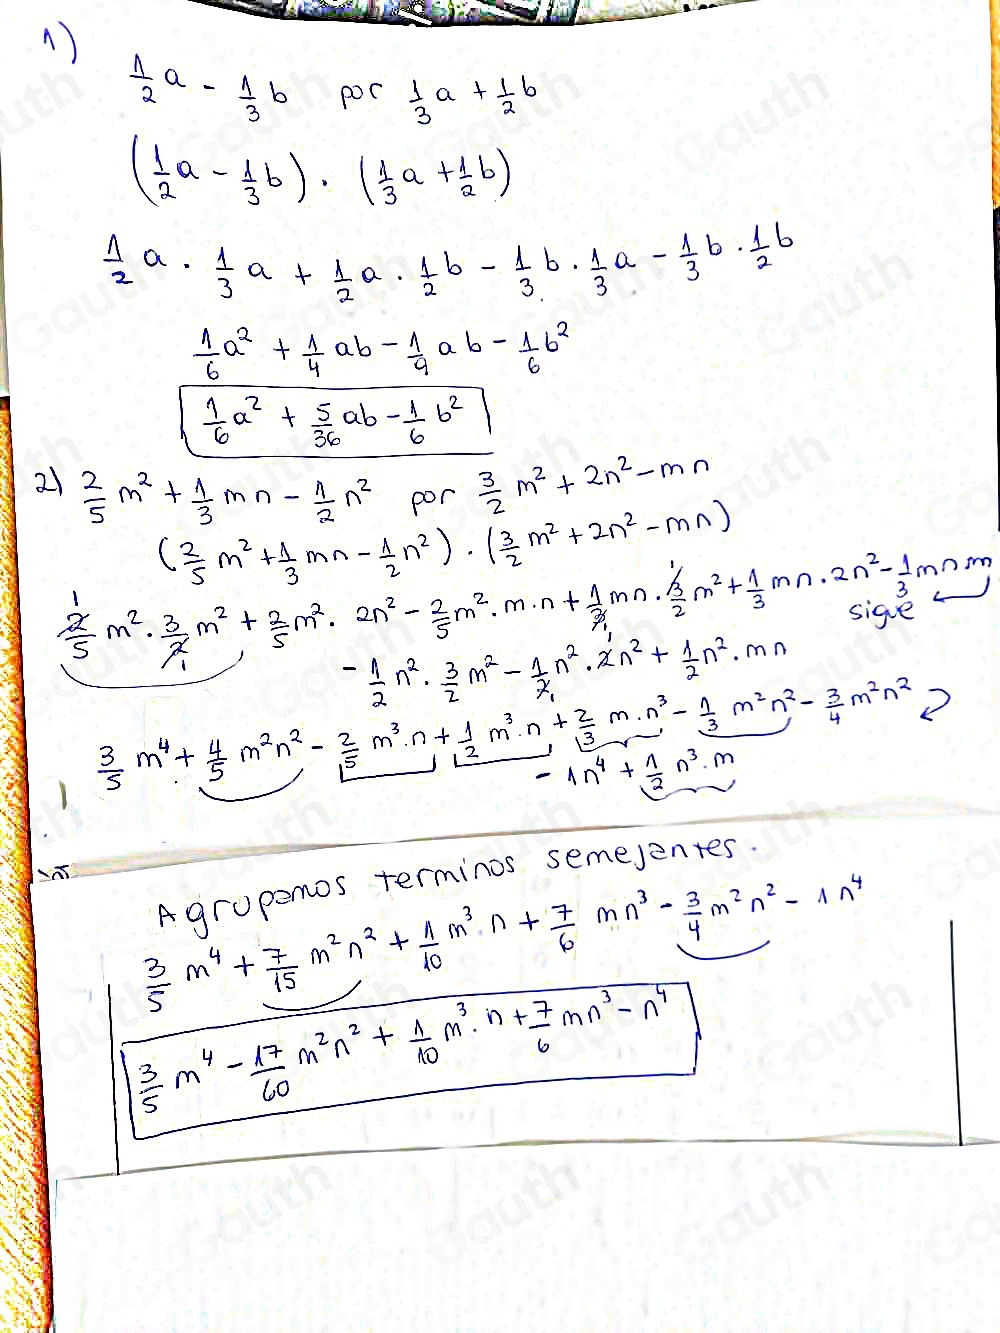 1)
1/2 a - 1/3 b por 1/3 a + 1/2 b
(1/2 a - 1/3 b) · (1/3 a + 1/2 b)
1/2 a · 1/3 a + 1/2 a · 1/2 b - 1/3 b · 1/3 a - 1/3 b · 1/2 b
1/6 a² + 1/4 ab - 1/9 ab - 1/6 b²
1/6 a² + 5/36 ab - 1/6 b²
2) 2/5 m² + 1/3 mn - 1/2 n² por 3/2 m² + 2n² - mn
(2/5 m² + 1/3 mn - 1/2 n²) · (3/2 m² + 2n² - mn)
2/5 m² · 3/2 m² + 2/5 m² · 2n² - 2/5 m² · m·n + 1/3 mn · 3/2 m² + 1/3 mn · 2n² - 1/3 mn
sigue
- 1/2 n² · 3/2 m² - 1/2 n² · 2n² + 1/2 n² · mn
3/5 m⁴ + 4/5 m²n² - 2/5 m³·n + 1/2 m³·n + 2/3 m·n³ - 1/3 m²n² - 3/4 m²n²
- 1n⁴ + 1/2 n³·m
Agrupamos terminos semejantes.
3/5 m⁴ + 7/15 m²n² + 1/10 m³·n + 7/6 mn³ - 3/4 m²n² - 1n⁴
3/5 m⁴ - 17/60 m²n² + 1/10 m³·n + 7/6 mn³ - n⁴